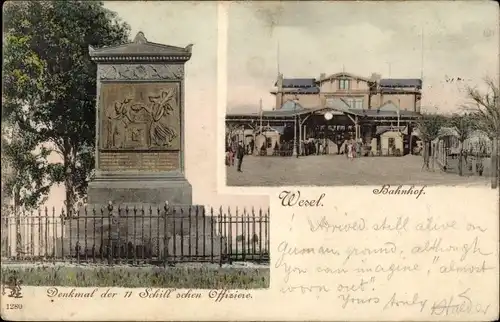 Wesel.
Bahnhof.
Arrived still alive on
German ground, although
you can imagine, "almost
worn out".
Yours truly
Denkmal der 11 Schill'schen Offiziere.
1280